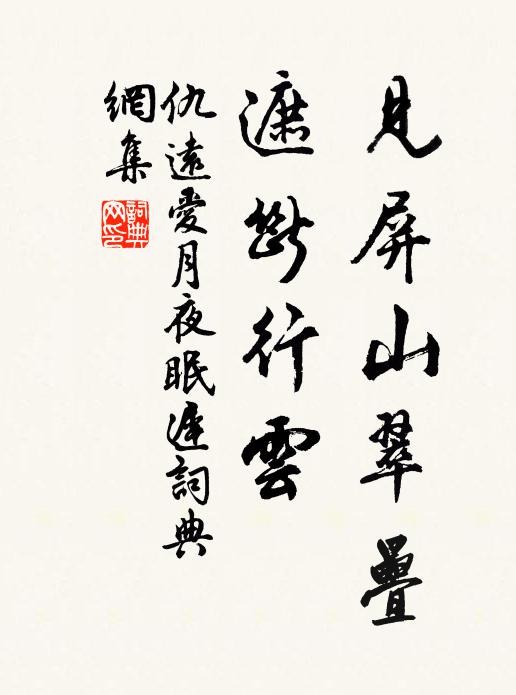 見屏山翠疊
遮斷行雲
仇遠愛月夜眠遲詞典
網集
詞典網印